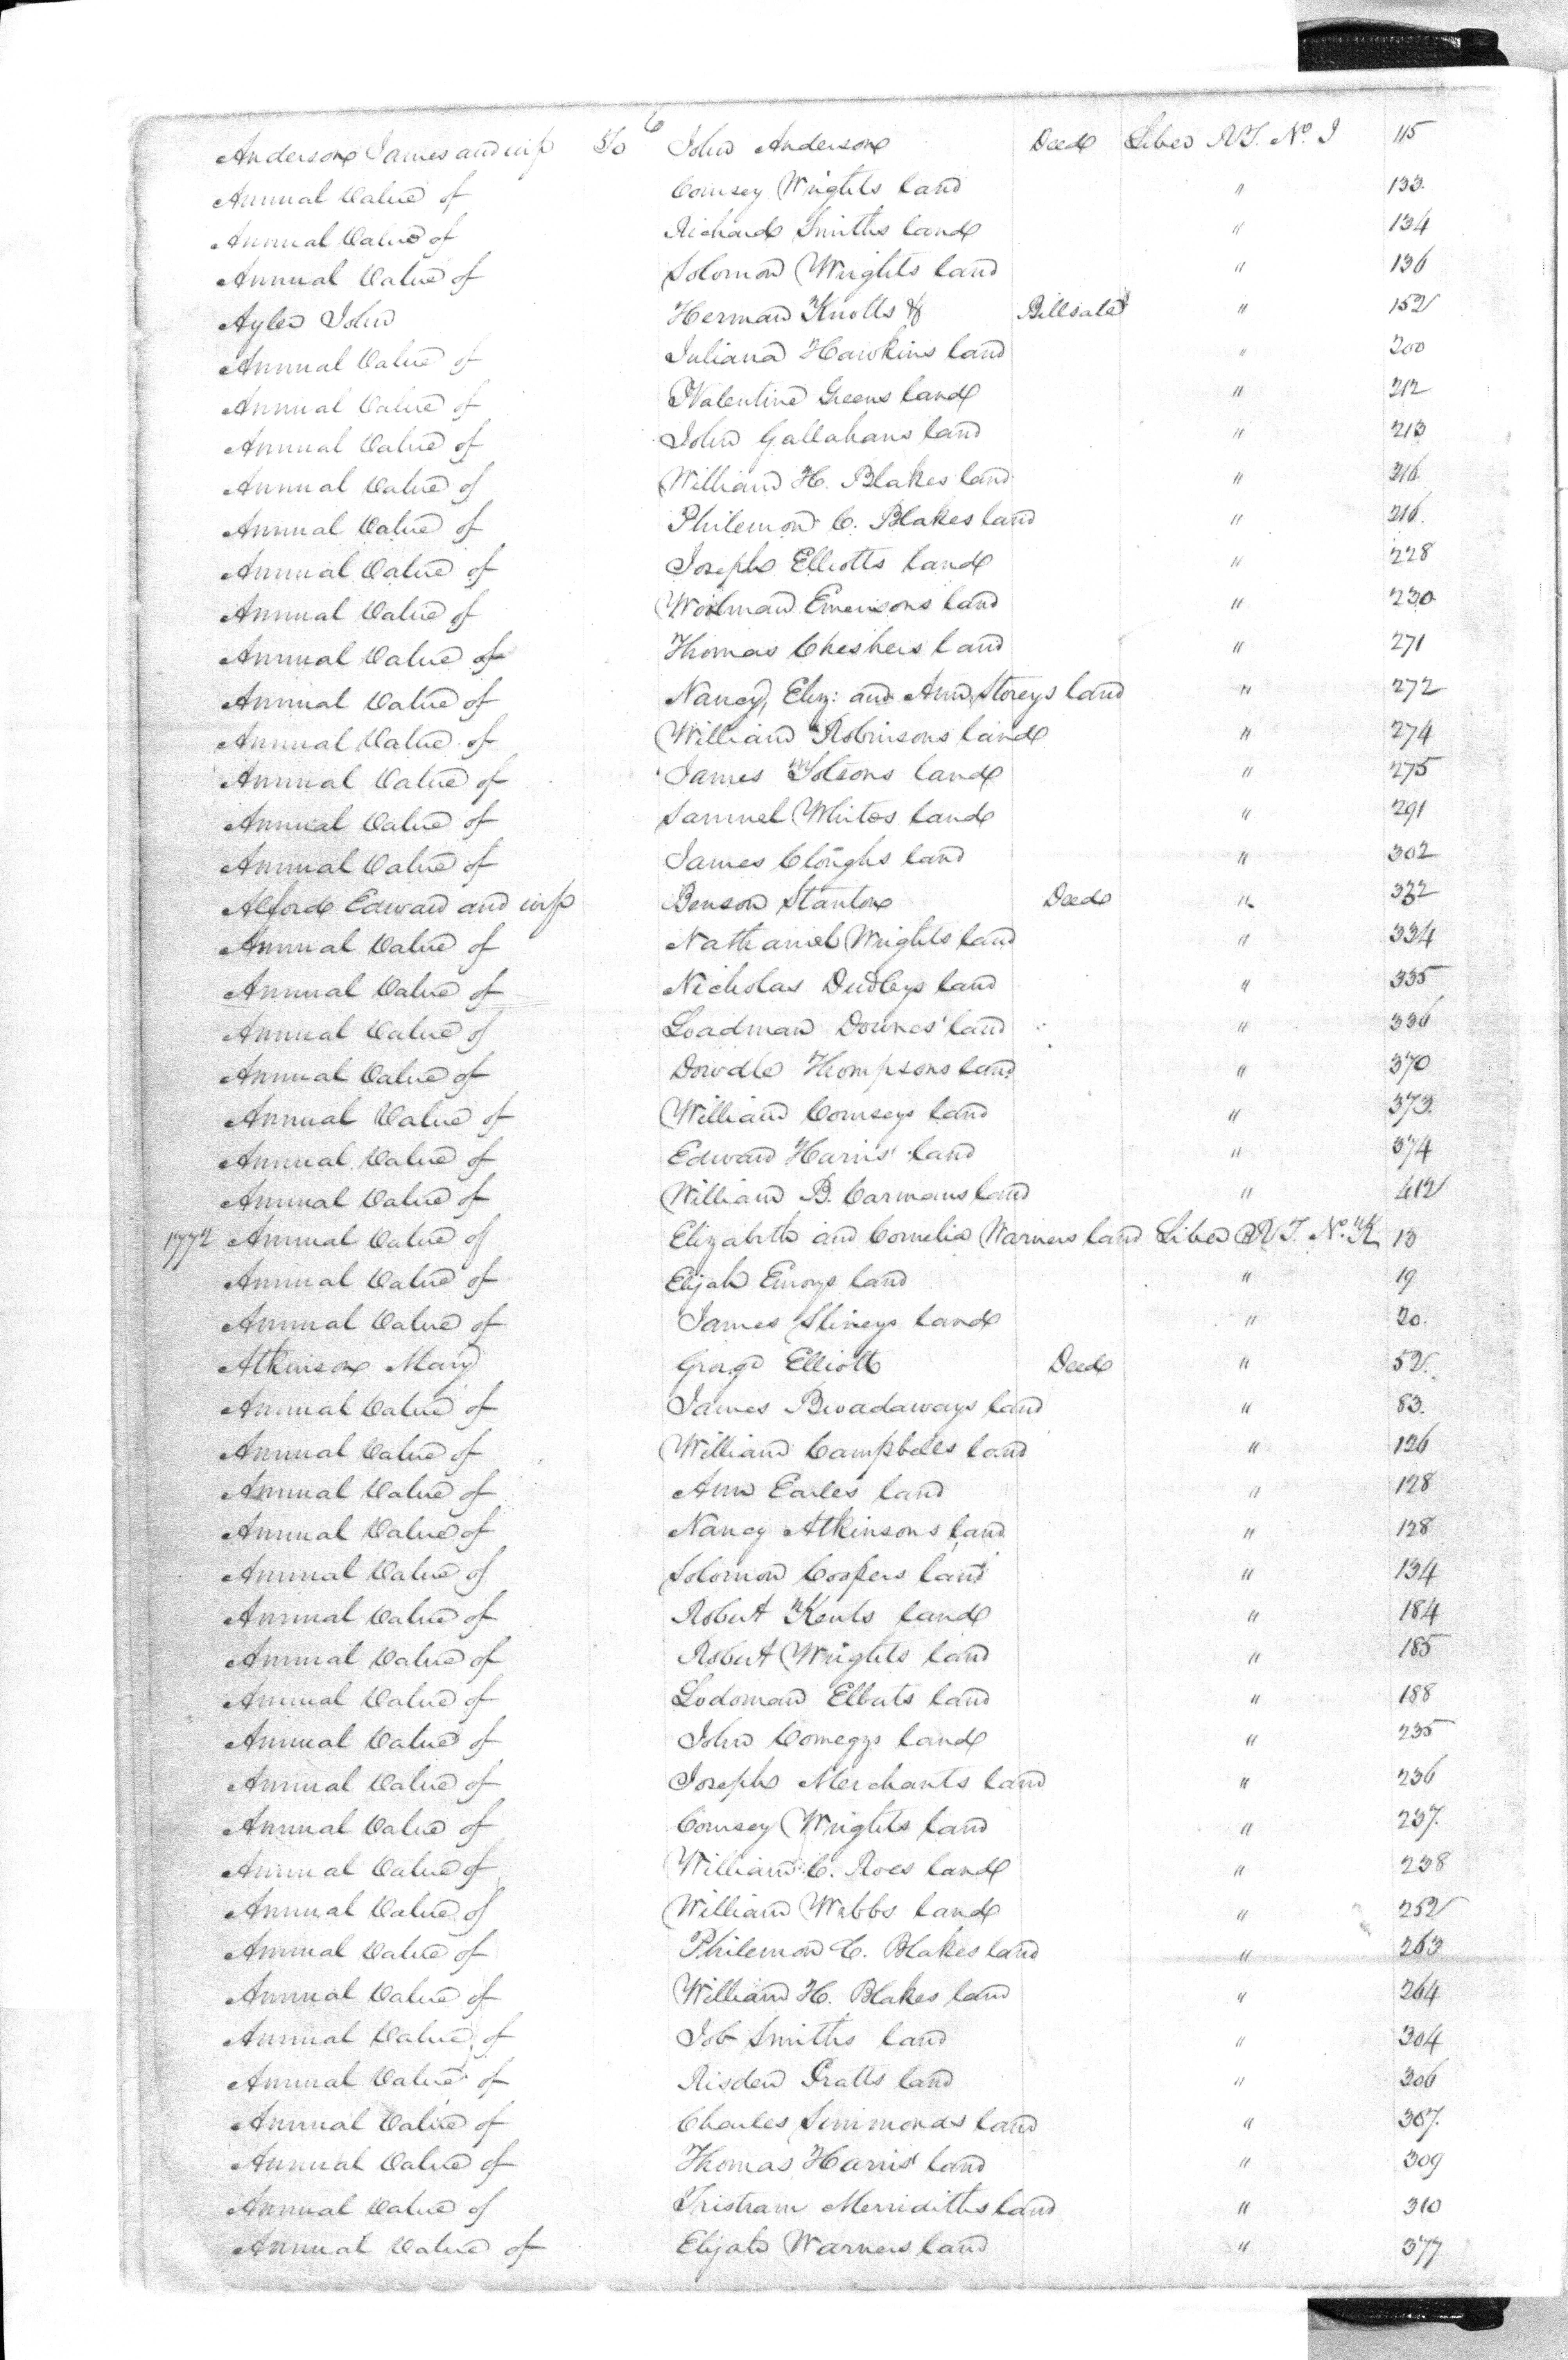 6
Anderson James and wife To John Anderson Deed Liber RT. No. I 115
Annual Value of Coursey Wrights land " 133.
Annual Value of Richard Smiths land " 134
Annual Value of Solomon Wrights land " 136
Ayler John Herman Knotts & Billsale " 152
Annual Value of Juliana Hawkins land " 200
Annual Value of Valentine Greens land " 212
Annual Value of John Gallahans land " 213
Annual Value of William H. Blakes land " 216.
Annual Value of Philemon C. Blakes land " 216.
Annual Value of Joseph Elliotts land " 228
Annual Value of Woolman Emersons land " 230.
Annual Value of Thomas Cheshers land " 271
Annual Value of Nancy, Eliz: and Ann Storeys land " 272
Annual Value of William Robinsons land " 274
Annual Value of James Totsons land " 275
Annual Value of Samuel Whites land " 291
Annual Value of James Cloughs land " 302
Alford Edward and wife Benson Stanton Deed " 332
Annual Value of Nathaniel Wrights land " 334
Annual Value of Nicholas Dudleys land " 335
Annual Value of Loadman Downes' land " 336
Annual Value of Dowdle Thompsons land " 370
Annual Value of William Courseys land " 373.
Annual Value of Edward Harris' land " 374
Annual Value of William B. Carmans land " 412
1772 Annual Value of Elizabeth and Cornelia Warners land Liber RT. No. K 13
Annual Value of Elijah Emorys land " 19
Annual Value of James Slineys land " 20.
Atkinson Mary George Elliott Deed " 52.
Annual Value of James Broadaways land " 83.
Annual Value of William Campbells land " 126
Annual Value of Ann Earles land " 128
Annual Value of Nancy Atkinsons land " 128
Annual Value of Solomon Coopers land " 134
Annual Value of Robert Kents land " 184
Annual Value of Robert Wrights land " 185
Annual Value of Lodoman Elberts land " 188
Annual Value of John Comegys land " 235
Annual Value of Joseph Merchants land " 236
Annual Value of Coursey Wrights land " 237.
Annual Value of William C. Roes land " 238
Annual Value of William Webbs land " 252
Annual Value of Philemon C. Blakes land " 263
Annual Value of William H. Blakes land " 264
Annual Value of Job Smiths land " 304
Annual Value of Risden Pratts land " 306
Annual Value of Charles Simmonds land " 307.
Annual Value of Thomas Harris' land " 309
Annual Value of Tristram Merridiths land " 310
Annual Value of Elijah Warners land " 377